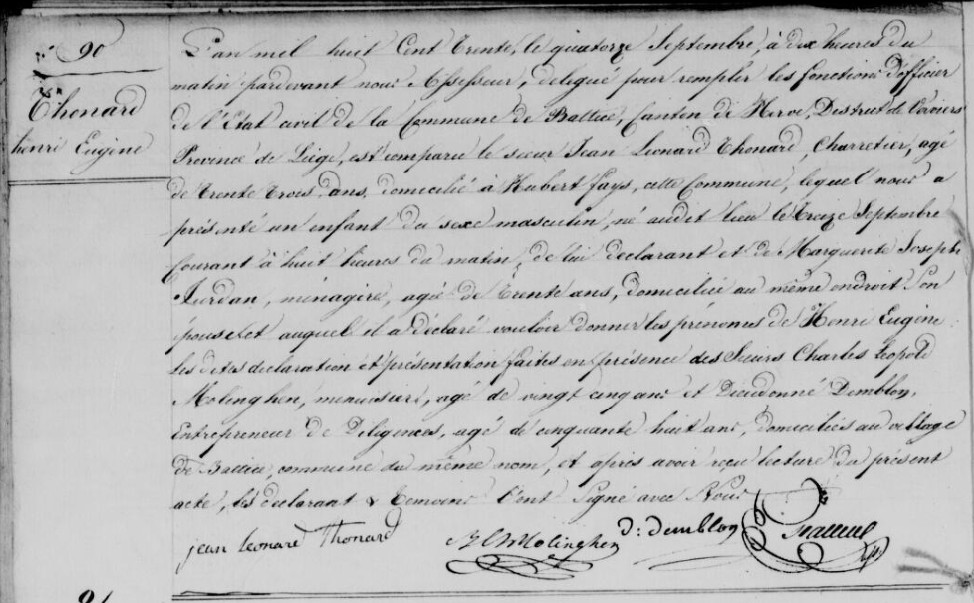 N° 90
Thonard
henri Eugène
L'an mil huit Cent Trente, le quatorze Septembre, à dix heures du
matin pardevant nous Assesseur, délégué pour remplir les fonctions d'officier
de l'Etat civil de la Commune de Battice, Canton de Herve, District de Verviers
Province de Liége, est comparu le sieur Jean Leonard Thonard, Charretier, agé
de Trente Trois ans, domicilié à Hubert fays, cette Commune, lequel nous a
présenté un enfant du sexe masculin, né audit lieu le Treize Septembre
Courant à huit heures du matin, de lui declarant et de Marguerite Joseph
Jurdan, ménagère, agée de Trente ans, domiciliée au même endroit Son
épouse, et auquel il a déclaré vouloir donner les prénoms de Henri Eugène
les dites declaration et présentation faites en présence des Sieurs Charles Leopold
Molinghen, menuisier, agé de vingt cinq ans et Dieudonné Demblon,
Entrepreneur de Diligences, agé de cinquante huit ans, domiciliés au village
de Battice commune du même nom, et après avoir reçu lecture du présent
acte, les declarant & Temoins l'ont Signé avec Nous
jean leonard Thonard
Molinghen
d: demblon
91